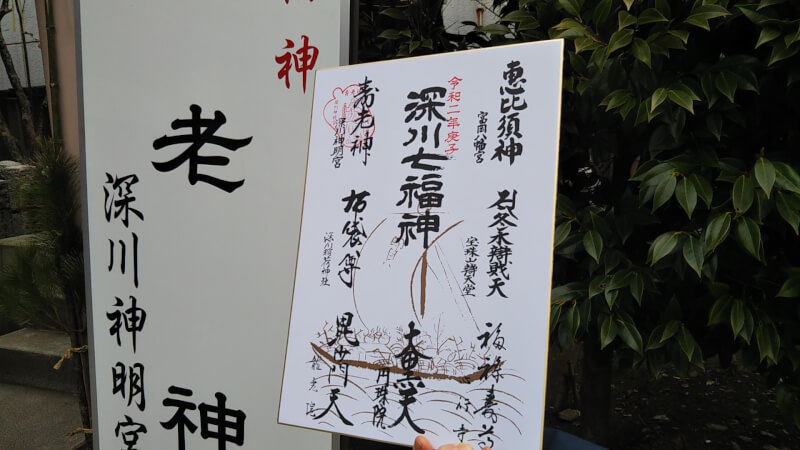 神
老神
深川神明宮
恵比須神
富岡八幡宮
冬木辯財天
福禄寿尊
令和二年庚子
深川七福神
大黒天
円珠院
寿老神
深川神明宮
布袋尊
深川稲荷神社
毘沙門天
龍光院